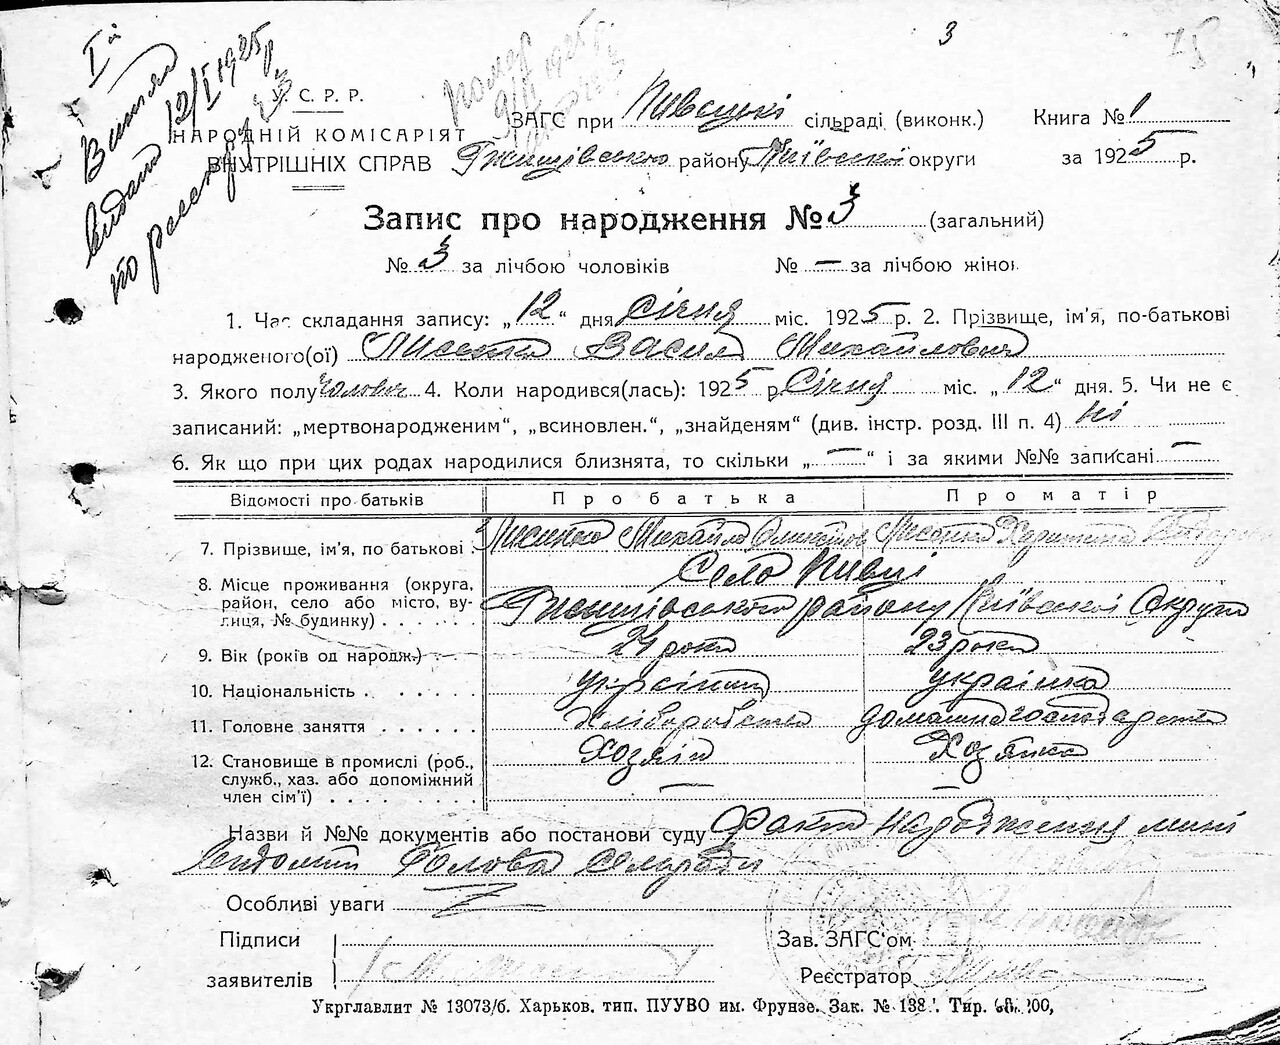 3
І-й Витяг видано 12/I 1925 р. по реєстру № 3
У. С. Р. Р.
НАРОДНІЙ КОМІСАРІЯТ
ВНУТРІШНІХ СПРАВ
ЗАГС при Пивецькі сільраді (виконк.) Книга № 1
Ржищівського району Київської округи за 1925 р.
Запис про народження № 3 (загальний)
№ 3 за лічбою чоловіків № — за лічбою жінок
1. Час складання запису: „12“ дня Січня міс. 1925 р. 2. Прізвище, ім'я, по-батькові
народженого(ої) Лисенко Василь Михайлович
3. Якого полу чолович 4. Коли народився(лась): 1925 р. Січня міс. „12“ дня. 5. Чи не є
записаний: „мертвонародженим“, „всиновлен.“, „знайденям“ (див. інстр. розд. III п. 4) ні
6. Як що при цих родах народилися близнята, то скільки „—“ і за якими №№ записані —
Відомості про батьків Про батька Про матір
7. Прізвище, ім'я, по батькові Лисенко Михайло Лисенко
Село Пивці
8. Місце проживання (округа,
район, село або місто, ву-
лиця, № будинку) Ржищівського району Київської Округи
9. Вік (років од народж.) 24 роки 23 роки
10. Національність українець українка
11. Головне заняття хліборобство домашнє господарство
12. Становище в промислі (роб.,
служб., хаз. або допоміжний
член сім'ї) Хозяїн Хозяйка
— —
Назви й №№ документів або постанови суду Факт народження мині
відомий Голова Сільради
Особливі уваги
Підписи
заявителів
Зав. ЗАГС'ом
Реєстратор
Укрглавлит № 13073/б. Харьков. тип. ПУУВО им. Фрунзе. Зак. № Тир.